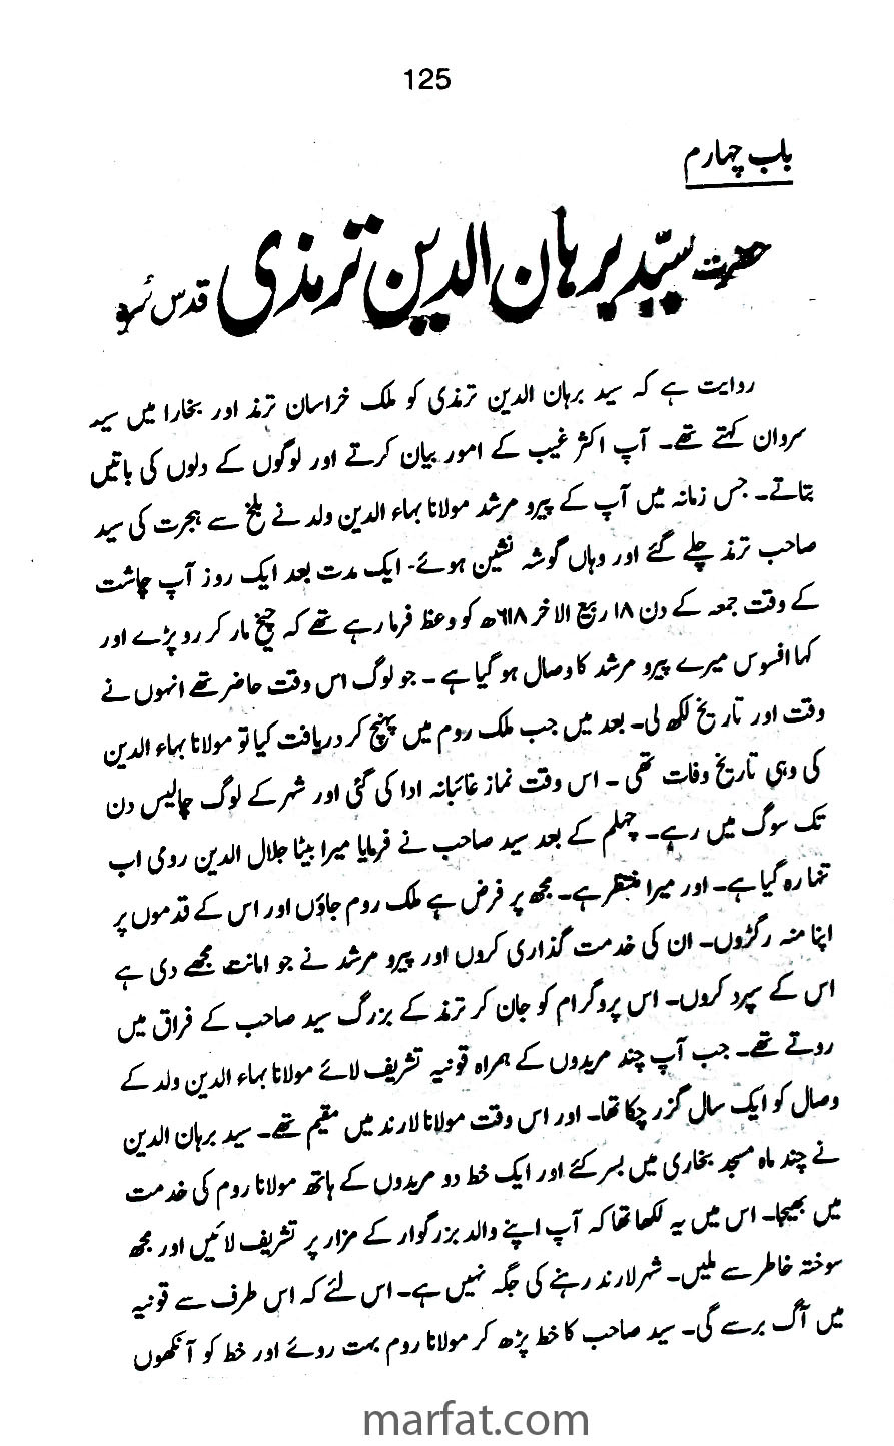 125
باب چہارم
حضرت سیّد برہان الدین ترمذی قدس سرہ
روایت ہے کہ سید برہان الدین ترمذی کو ملک خراسان ترمذ اور بخارا میں سید
سردان کہتے تھے۔ آپ اکثر غیب کے امور بیان کرتے اور لوگوں کے دلوں کی باتیں
بتاتے۔ جس زمانہ میں آپ کے پیرو مرشد مولانا بہاء الدین ولد نے بلخ سے ہجرت کی سید
صاحب ترمذ چلے گئے اور وہاں گوشہ نشین ہوئے۔ ایک مدت بعد ایک روز آپ چاشت
کے وقت جمعہ کے دن ۱۸ ربیع الاخر ۶۱۸ھ کو وعظ فرما رہے تھے کہ چیخ مار کر رو پڑے اور
کہا افسوس میرے پیرو مرشد کا وصال ہو گیا ہے۔ جو لوگ اس وقت حاضر تھے انہوں نے
وقت اور تاریخ لکھ لی۔ بعد میں جب ملک روم میں پہنچ کر دریافت کیا تو مولانا بہاء الدین
کی وہی تاریخ وفات تھی۔ اس وقت نماز غائبانہ ادا کی گئی اور شہر کے لوگ چالیس دن
تک سوگ میں رہے۔ چہلم کے بعد سید صاحب نے فرمایا میرا بیٹا جلال الدین رومی اب
تنہا رہ گیا ہے۔ اور میرا منتظر ہے۔ مجھ پر فرض ہے ملک روم جاؤں اور اس کے قدموں پر
اپنا منہ رگڑوں۔ ان کی خدمت گذاری کروں اور پیرو مرشد نے جو امانت مجھے دی ہے
اس کے سپرد کروں۔ اس پروگرام کو جان کر ترمذ کے بزرگ سید صاحب کے فراق میں
روتے تھے۔ جب آپ چند مریدوں کے ہمراہ قونیہ تشریف لائے مولانا بہاء الدین ولد کے
وصال کو ایک سال گزر چکا تھا۔ اور اس وقت مولانا لارند میں مقیم تھے۔ سید برہان الدین
نے چند ماہ مسجد بخاری میں بسر کئے اور ایک خط دو مریدوں کے ہاتھ مولانا روم کی خدمت
میں بھیجا۔ اس میں یہ لکھا تھا کہ آپ اپنے والد بزرگوار کے مزار پر تشریف لائیں اور مجھ
سوختہ خاطر سے ملیں۔ شہر لارند رہنے کی جگہ نہیں ہے۔ اس لئے کہ اس طرف سے قونیہ
میں آگ برسے گی۔ سید صاحب کا خط پڑھ کر مولانا روم بہت روئے اور خط کو آنکھوں
marfat.com